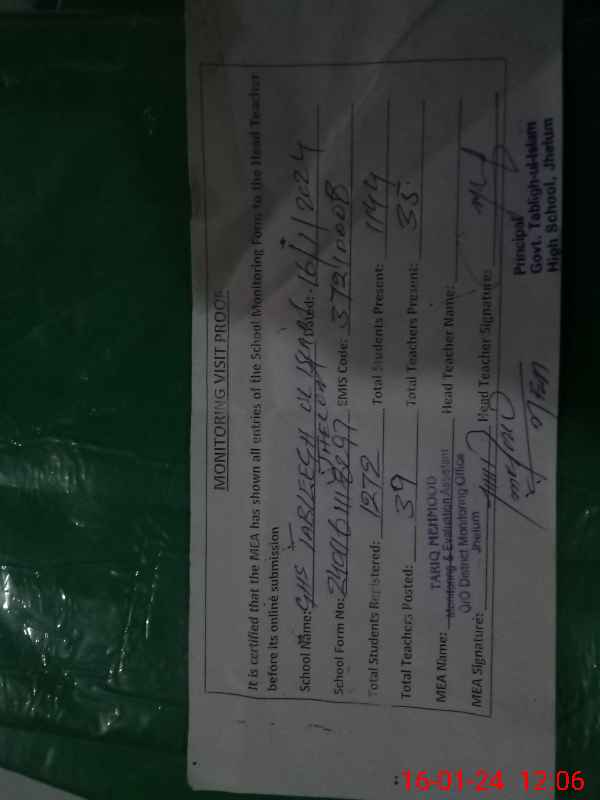 MONITORING VISIT PROOF
It is certified that the MEA has shown all entries of the School Monitoring Form to the Head Teacher
before its online submission
School Name: GHS TABLEEGH UL ISLAM Dated: 16/1/2024
JHELUM
School Form No: EMIS Code: 37210008
Total Students Registered: 1272 Total Students Present: 1144
Total Teachers Posted: 39 Total Teachers Present: 35
TARIQ MEHMOOD
MEA Name: Monitoring & Evaluation Assistant Head Teacher Name:
O/O District Monitoring Office
Jhelum
MEA Signature: Head Teacher Signature:
MEA
Principal
Govt. Tabligh-ul-Islam
High School, Jhelum
16-01-24 12:06